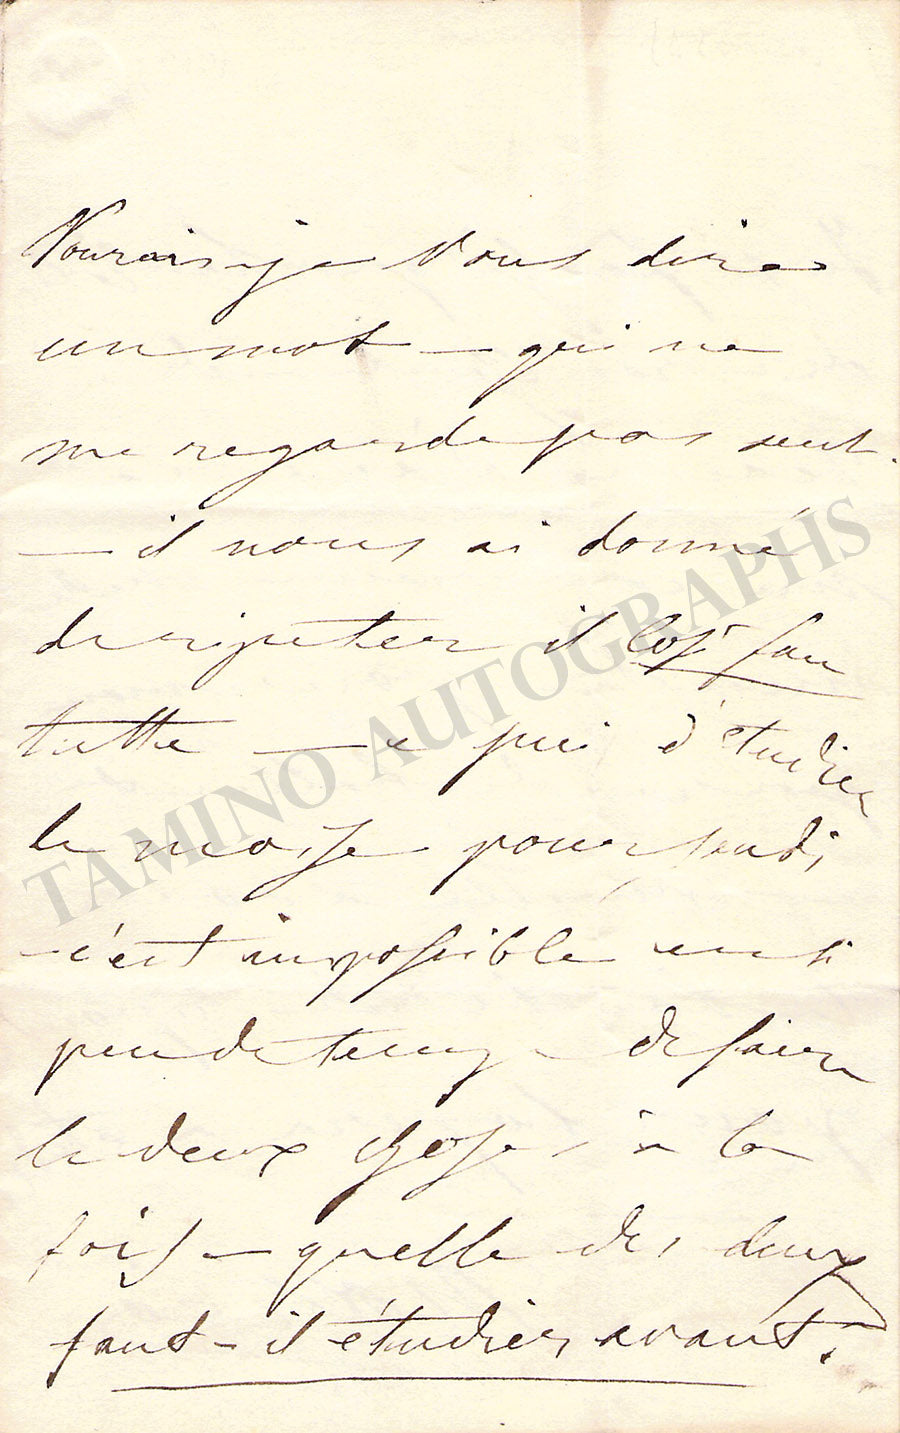 Pourais-je Vous dire
un mot — qui ne
me regarde pas seul.
— il nous ai donné
de riputter il Cosi fan
tutte — e pui d'étudier
le moise pour jeudi,
— c'est impossible un si
peu de temps de faire
le deux choses à la
fois — quelle des deux
faut-il étudier avant?
TAMINO AUTOGRAPHS